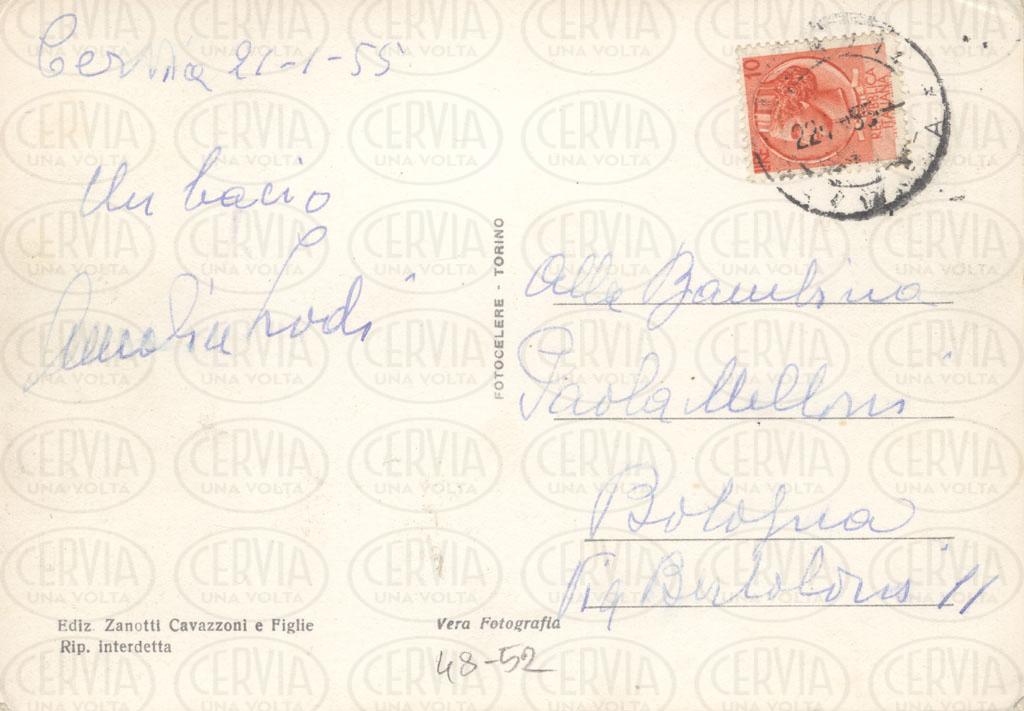 Cervia 21-1-55
Un bacio
Lodi
FOTOCELERE - TORINO
10
REPUBBLICA
ITALIANA
Alla Bambina
Paola Melloni
Bologna
Via 11
Ediz. Zanotti Cavazzoni e Figlie
Rip. interdetta
Vera Fotografia
48-52
CERVIA
UNA VOLTA